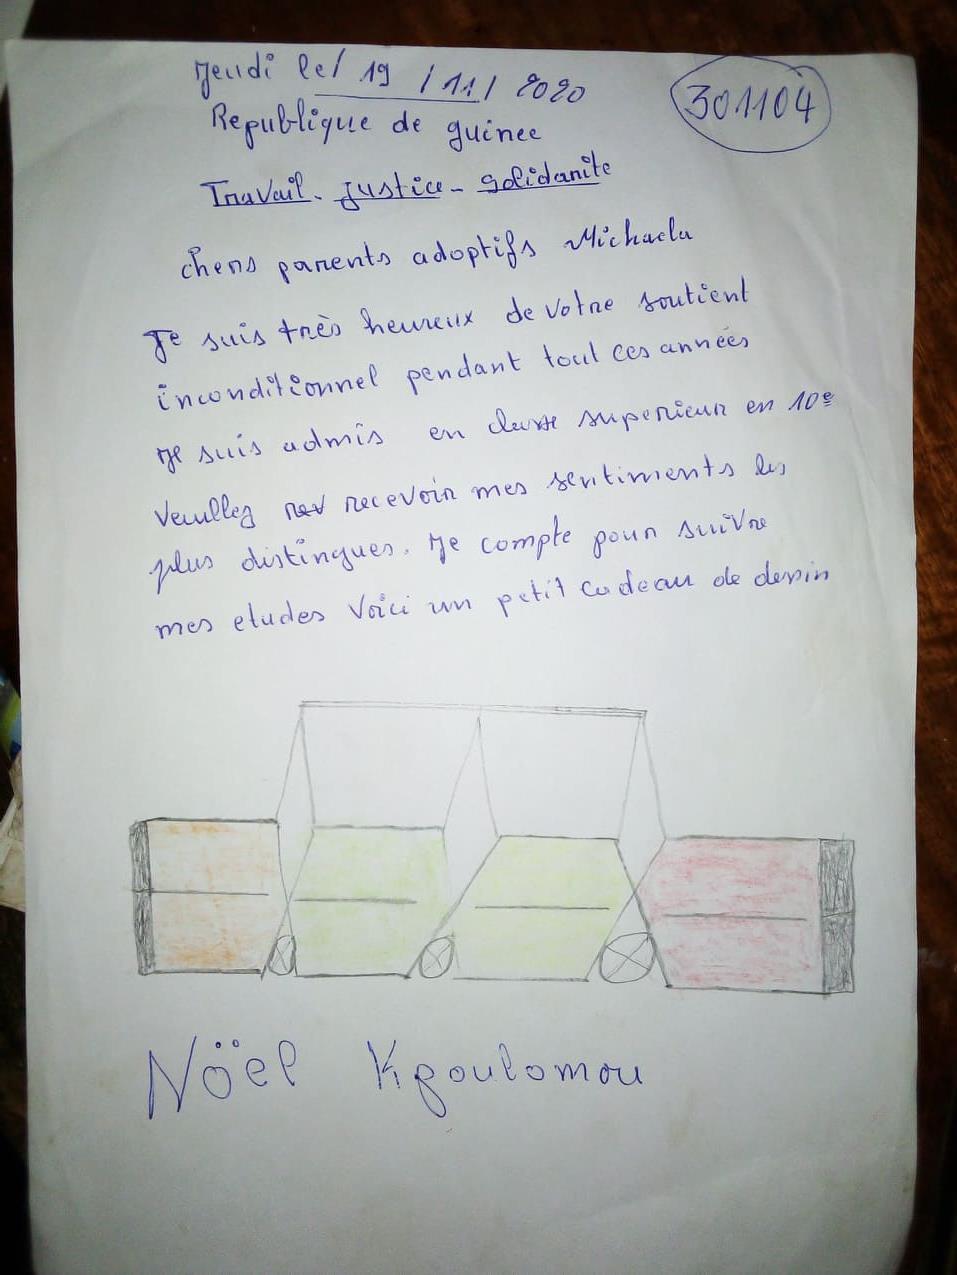 Jeudi le/ 19 /11/ 2020
301104
Republique de guinee
Travail - Justice - Solidarite
chers parents adoptifs Michaela
Je suis très heureux de votre soutient
inconditionnel pendant tout ces années
Je suis admis en classe superieur en 10e
Veullez recevoir mes sentiments les
plus distingues. Je compte pour suivre
mes etudes Voici un petit cadeau de dessin
Nöel Kpoulomou